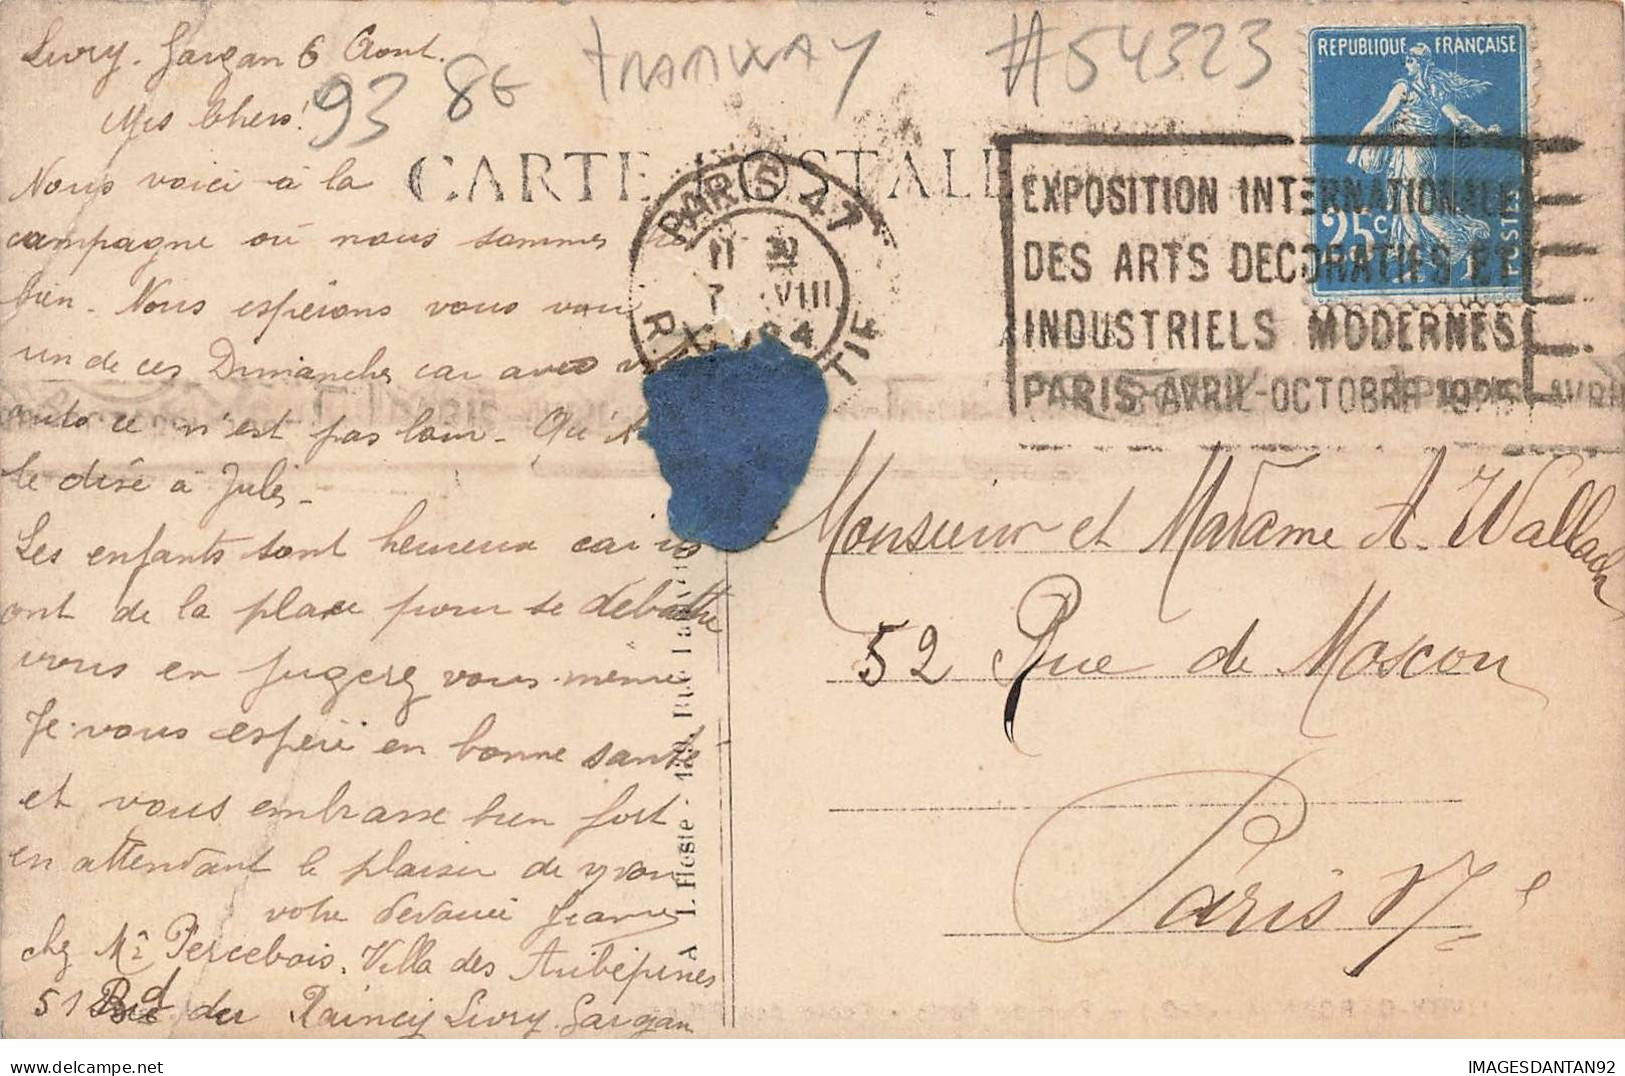 Livry. Gargan 6 Aout.
93 8€ TRAMWAY #54323
Mes Chers!
CARTE POSTALE
Nous voici à la
campagne où nous sommes
bien. Nous espérons vous
un de ces Dimanches car avec
auto ce n'est pas loin. Qu'
le dise à Jules
Les enfants sont heureux car
ont de la place pour se debattre
vous en jugerez vous-même
Je vous espère en bonne santé
et vous embrasse bien fort
en attendant le plaisir de
votre devouée Jeanne
chez Mr Percebois. Villa des Aubépines
51 Bd du Raincy Livry Gargan
REPUBLIQUE FRANÇAISE
25c
POSTES
PARIS 47
11 30
7 VIII
24
EXPOSITION INTERNATIONALE
DES ARTS DECORATIFS ET
INDUSTRIELS MODERNES
PARIS AVRIL-OCTOBRE 1925
Monsieur et Madame A. Wallach
52 Rue de Moscou
Paris
IMAGESDANTAN92